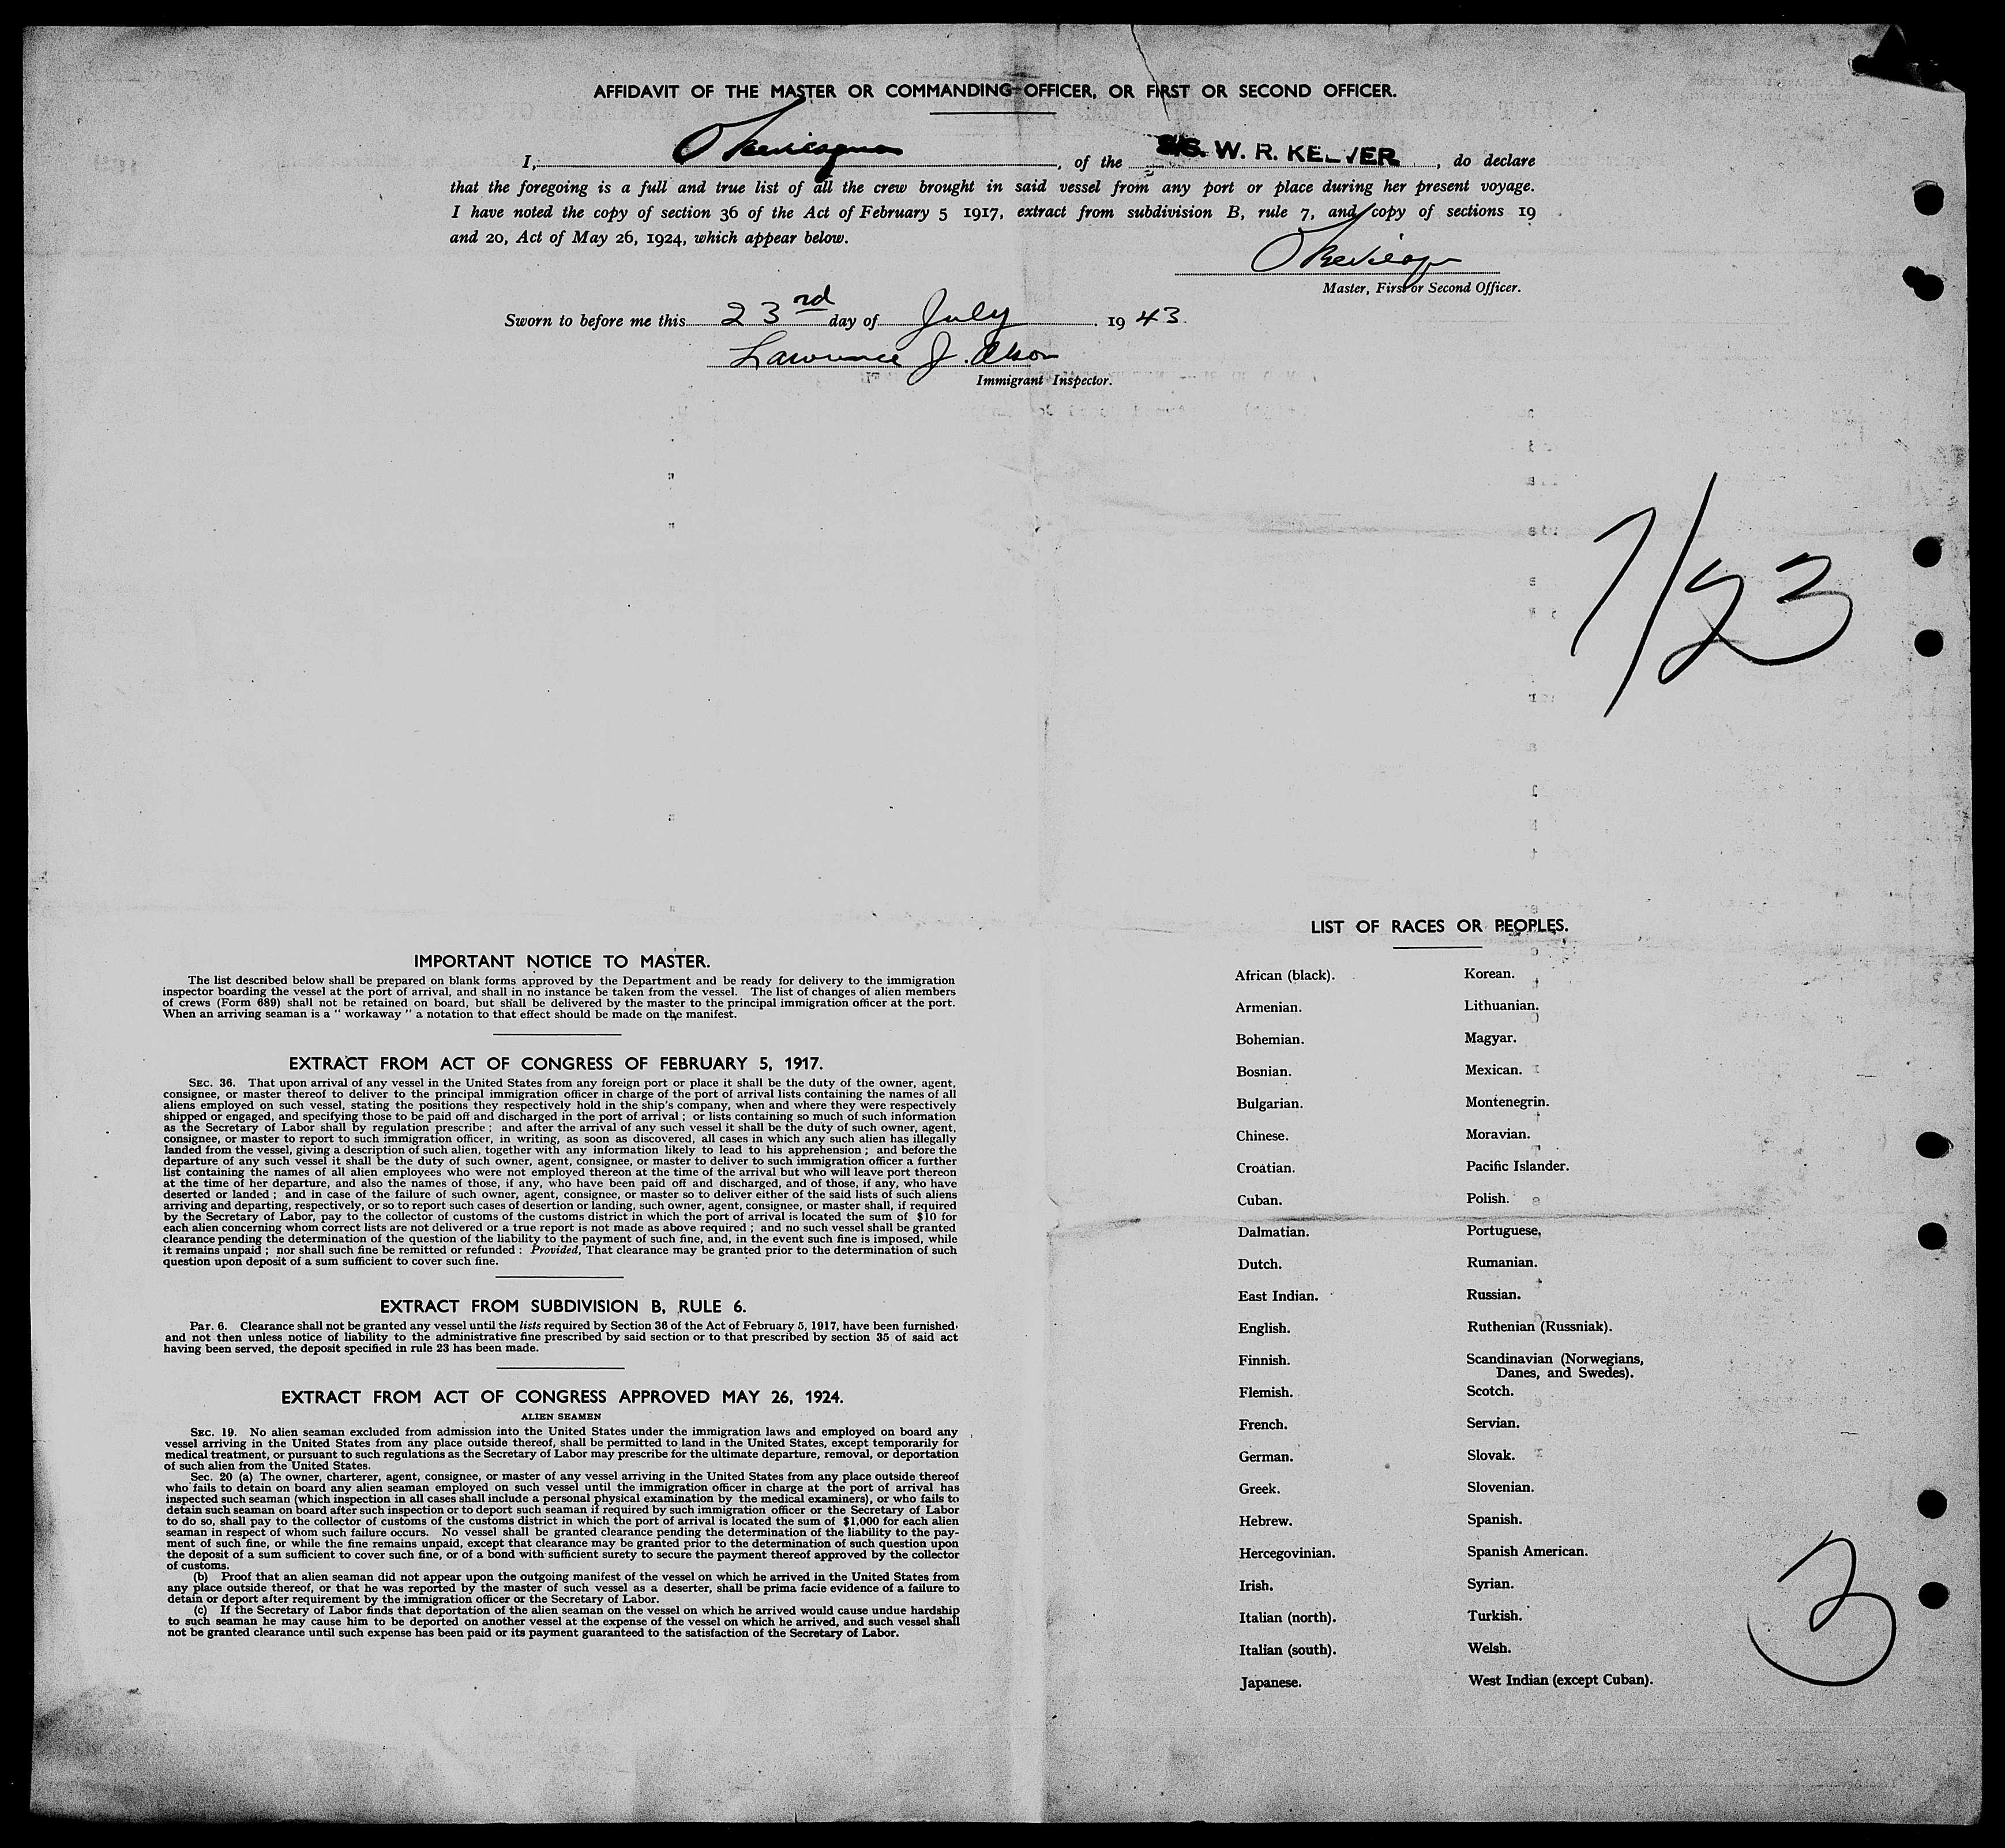 AFFIDAVIT OF THE MASTER OR COMMANDING OFFICER, OR FIRST OR SECOND OFFICER.
I, , of the S/S. W. R. KELVER , do declare
that the foregoing is a full and true list of all the crew brought in said vessel from any port or place during her present voyage.
I have noted the copy of section 36 of the Act of February 5 1917, extract from subdivision B, rule 7, and copy of sections 19
and 20, Act of May 26, 1924, which appear below.
Master, First or Second Officer.
Sworn to before me this 23rd day of July . 19 43.
Lawrence J. Olson
Immigrant Inspector.
7/23
IMPORTANT NOTICE TO MASTER.
The list described below shall be prepared on blank forms approved by the Department and be ready for delivery to the immigration
inspector boarding the vessel at the port of arrival, and shall in no instance be taken from the vessel. The list of changes of alien members
of crews (Form 689) shall not be retained on board, but shall be delivered by the master to the principal immigration officer at the port.
When an arriving seaman is a " workaway " a notation to that effect should be made on the manifest.
EXTRACT FROM ACT OF CONGRESS OF FEBRUARY 5, 1917.
SEC. 36. That upon arrival of any vessel in the United States from any foreign port or place it shall be the duty of the owner, agent,
consignee, or master thereof to deliver to the principal immigration officer in charge of the port of arrival lists containing the names of all
aliens employed on such vessel, stating the positions they respectively hold in the ship's company, when and where they were respectively
shipped or engaged, and specifying those to be paid off and discharged in the port of arrival ; or lists containing so much of such information
as the Secretary of Labor shall by regulation prescribe ; and after the arrival of any such vessel it shall be the duty of such owner, agent,
consignee, or master to report to such immigration officer, in writing, as soon as discovered, all cases in which any such alien has illegally
landed from the vessel, giving a description of such alien, together with any information likely to lead to his apprehension ; and before the
departure of any such vessel it shall be the duty of such owner, agent, consignee, or master to deliver to such immigration officer a further
list containing the names of all alien employees who were not employed thereon at the time of the arrival but who will leave port thereon
at the time of her departure, and also the names of those, if any, who have been paid off and discharged, and of those, if any, who have
deserted or landed ; and in case of the failure of such owner, agent, consignee, or master so to deliver either of the said lists of such aliens
arriving and departing, respectively, or so to report such cases of desertion or landing, such owner, agent, consignee, or master shall, if required
by the Secretary of Labor, pay to the collector of customs of the customs district in which the port of arrival is located the sum of $10 for
each alien concerning whom correct lists are not delivered or a true report is not made as above required ; and no such vessel shall be granted
clearance pending the determination of the question of the liability to the payment of such fine, and, in the event such fine is imposed, while
it remains unpaid ; nor shall such fine be remitted or refunded : Provided, That clearance may be granted prior to the determination of such
question upon deposit of a sum sufficient to cover such fine.
EXTRACT FROM SUBDIVISION B, RULE 6.
Par. 6. Clearance shall not be granted any vessel until the lists required by Section 36 of the Act of February 5, 1917, have been furnished
and not then unless notice of liability to the administrative fine prescribed by said section or to that prescribed by section 35 of said act
having been served, the deposit specified in rule 23 has been made.
EXTRACT FROM ACT OF CONGRESS APPROVED MAY 26, 1924.
ALIEN SEAMEN
SEC. 19. No alien seaman excluded from admission into the United States under the immigration laws and employed on board any
vessel arriving in the United States from any place outside thereof, shall be permitted to land in the United States, except temporarily for
medical treatment, or pursuant to such regulations as the Secretary of Labor may prescribe for the ultimate departure, removal, or deportation
of such alien from the United States.
Sec. 20 (a) The owner, charterer, agent, consignee, or master of any vessel arriving in the United States from any place outside thereof
who fails to detain on board any alien seaman employed on such vessel until the immigration officer in charge at the port of arrival has
inspected such seaman (which inspection in all cases shall include a personal physical examination by the medical examiners), or who fails to
detain such seaman on board after such inspection or to deport such seaman if required by such immigration officer or the Secretary of Labor
to do so, shall pay to the collector of customs of the customs district in which the port of arrival is located the sum of $1,000 for each alien
seaman in respect of whom such failure occurs. No vessel shall be granted clearance pending the determination of the liability to the pay-
ment of such fine, or while the fine remains unpaid, except that clearance may be granted prior to the determination of such question upon
the deposit of a sum sufficient to cover such fine, or of a bond with sufficient surety to secure the payment thereof approved by the collector
of customs.
(b) Proof that an alien seaman did not appear upon the outgoing manifest of the vessel on which he arrived in the United States from
any place outside thereof, or that he was reported by the master of such vessel as a deserter, shall be prima facie evidence of a failure to
detain or deport after requirement by the immigration officer or the Secretary of Labor.
(c) If the Secretary of Labor finds that deportation of the alien seaman on the vessel on which he arrived would cause undue hardship
to such seaman he may cause him to be deported on another vessel at the expense of the vessel on which he arrived, and such vessel shall
not be granted clearance until such expense has been paid or its payment guaranteed to the satisfaction of the Secretary of Labor.
LIST OF RACES OR PEOPLES.
African (black). Korean.
Armenian. Lithuanian.
Bohemian. Magyar.
Bosnian. Mexican.
Bulgarian. Montenegrin.
Chinese. Moravian.
Croatian. Pacific Islander.
Cuban. Polish.
Dalmatian. Portuguese.
Dutch. Rumanian.
East Indian. Russian.
English. Ruthenian (Russniak).
Finnish. Scandinavian (Norwegians,
Danes, and Swedes).
Flemish. Scotch.
French. Servian.
German. Slovak.
Greek. Slovenian.
Hebrew. Spanish.
Hercegovinian. Spanish American.
Irish. Syrian.
Italian (north). Turkish.
Italian (south). Welsh.
Japanese. West Indian (except Cuban).
3